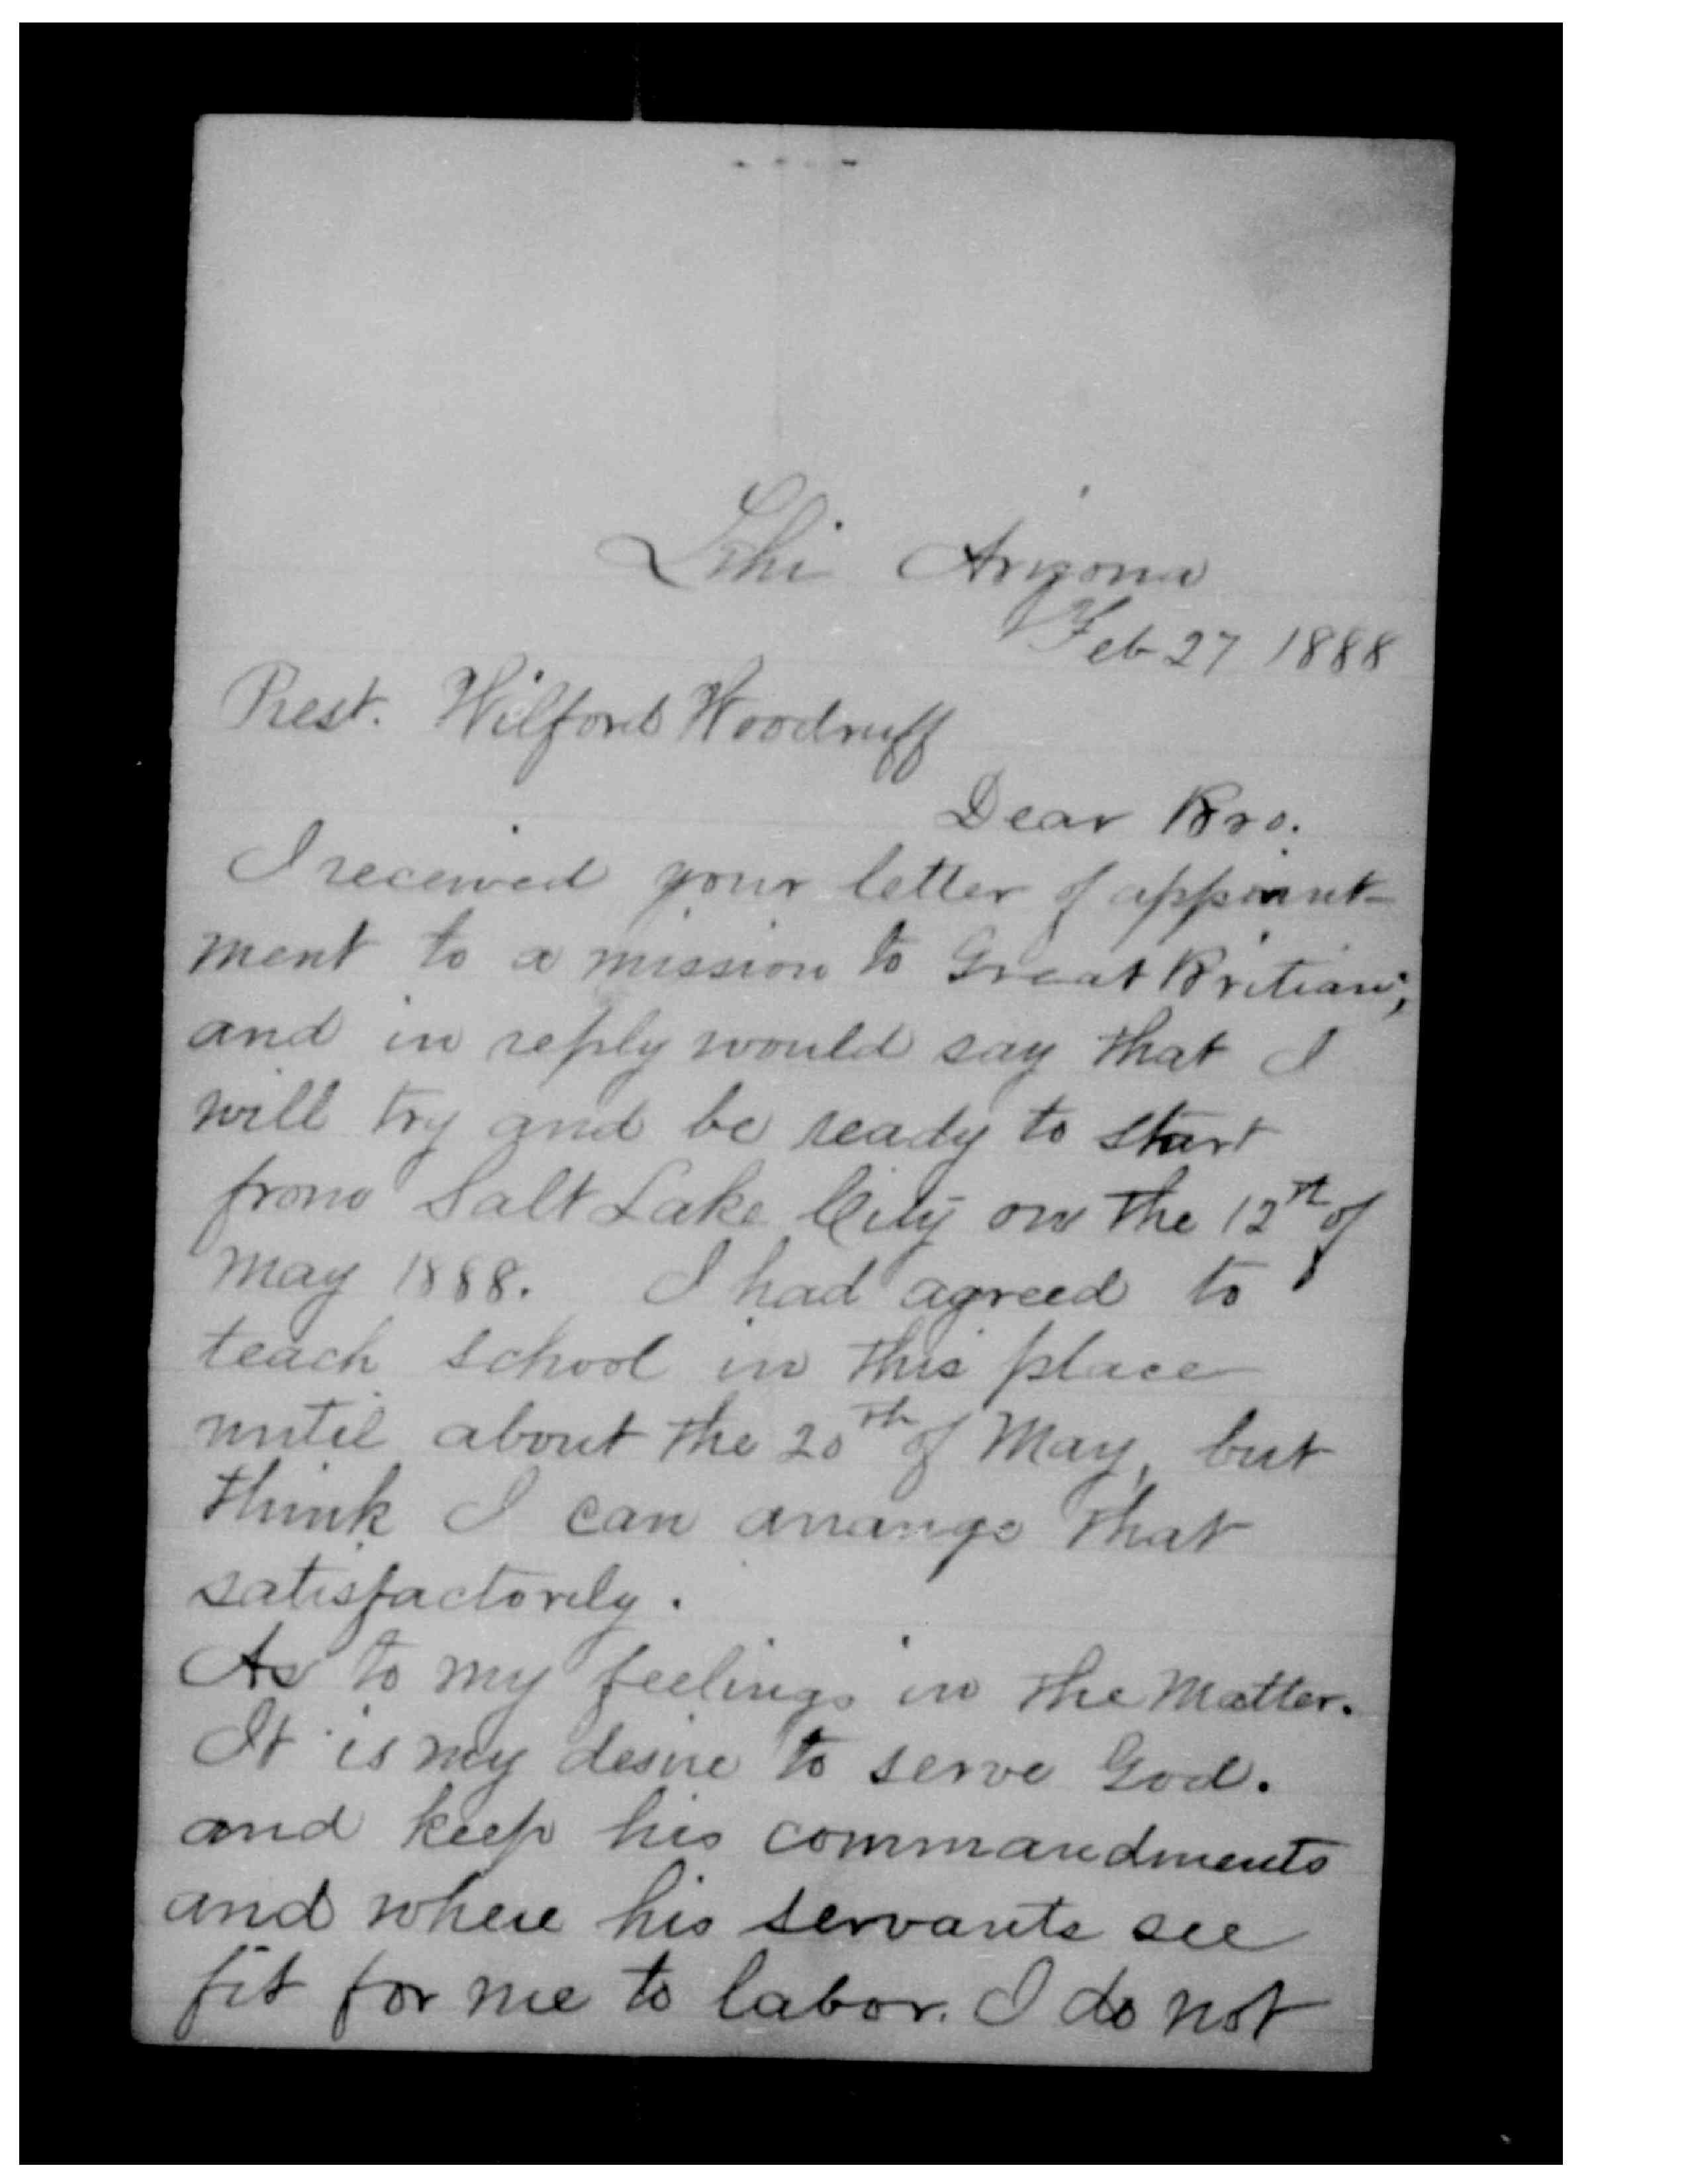 Lehi Arizona
Feb 27 1888
Prest. Wilford Woodruff
Dear Bro.
I received your letter of appoint-
ment to a mission to Great Britian;
and in reply would say that I
will try and be ready to start
from Salt Lake City on the 12th of
May 1888. I had agreed to
teach school in this place
until about the 20th of May, but
think I can arrange that
satisfactorily.
As to my feelings in the matter.
It is my desire to serve God.
and keep his commandments
and where his servants see
fit for me to labor. I do not